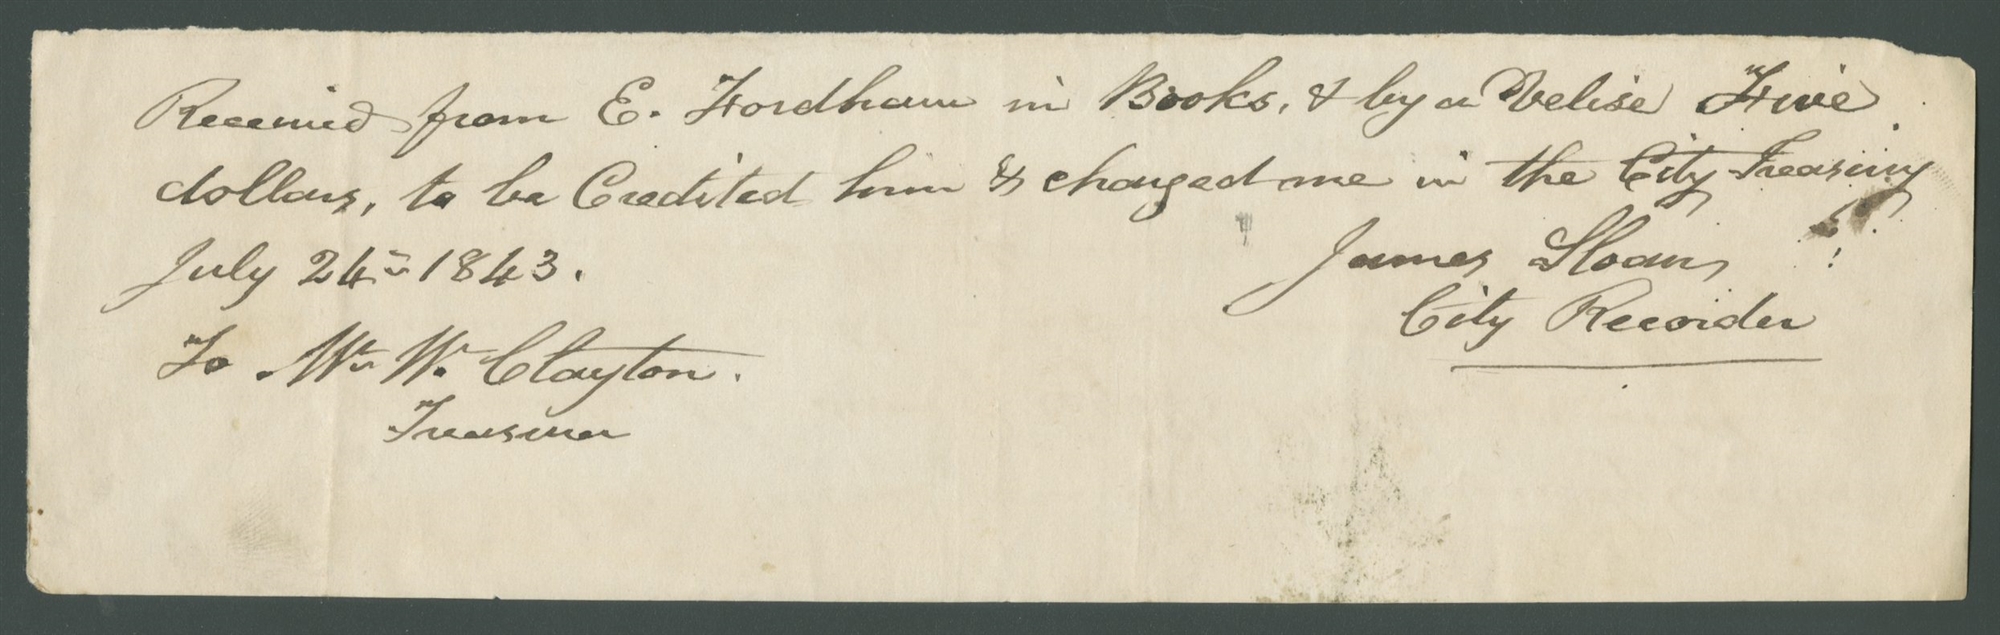 Received from E. Fordham in Books, & by a Velise Five
dollars, to be Credited him & charged me in the City Treasury
July 24th 1843.
James Sloan
City Recorder
To Wm W. Clayton.
Treasurer